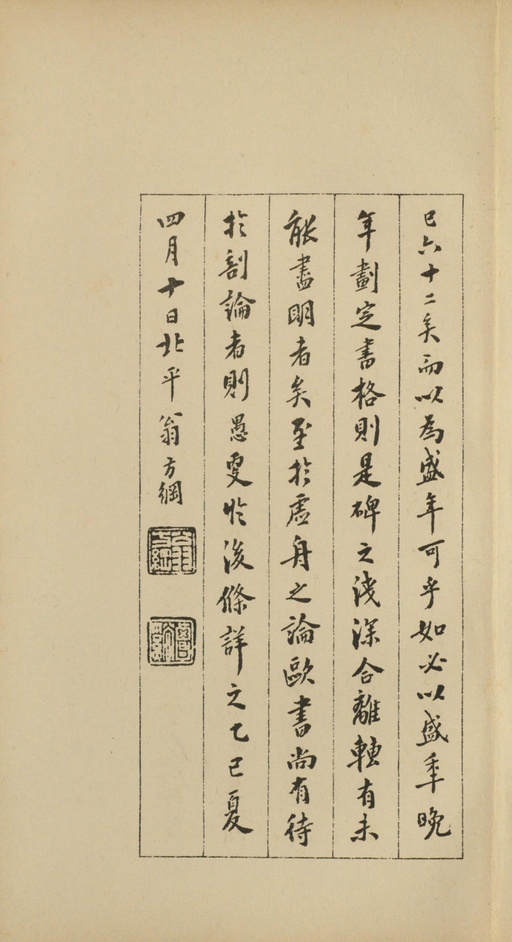 已六十二矣而以為盛年可乎如必以盛年晚
年劃定書格則是碑之淺深合離轉有未
能盡明者矣至於虛舟之論歐書尚有待
於剖論者則愚更於後條詳之乙巳夏
四月十日北平翁方綱